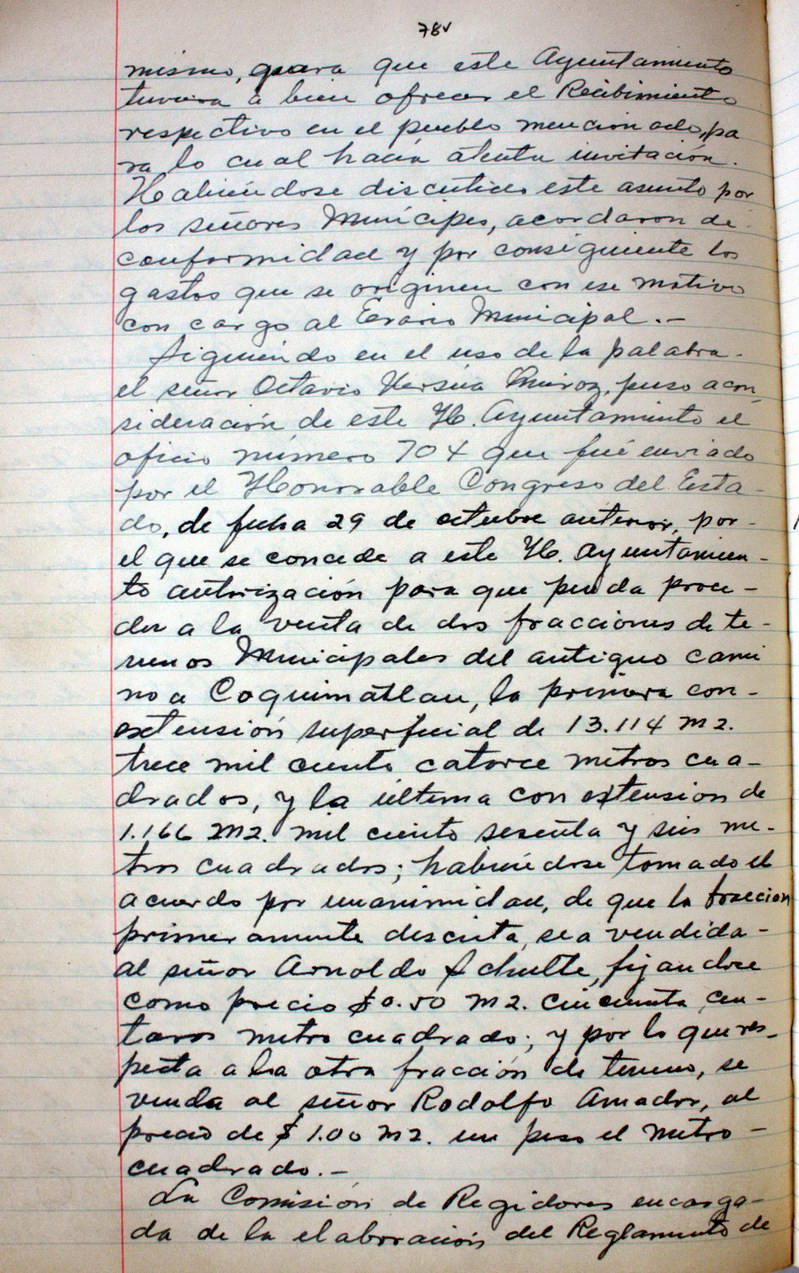 78v
mismo, para que este Ayuntamiento
tuviera a bien ofrecer el Recibimiento
respectivo en el pueblo mencionado, pa
ra lo cual hacía atenta invitación.
Habiéndose discutido este asunto por
los señores Munícipes, acordaron de
conformidad y por consiguiente los
gastos que se originen con ese motivo
con cargo al Erario Municipal.-
Siguiendo en el uso de la palabra-
el señor Octavio Quiroz, puso a con_
sideración de este H. Ayuntamiento el
oficio número 704 que fué enviado
por el Honorable Congreso del Esta-
do, de fecha 29 de octubre anterior, por-
el que se concede a este H. Ayuntamien-
to autorización para que pueda proce-
der a la venta de dos fracciones de te-
rrenos Municipales del antiguo cami
no a Coquimatlan, la primera con-
extensión superficial de 13.114 m2.
trece mil ciento catorce metros cua-
drados, y la última con extension de
1.166 m2. mil ciento sesenta y seis me-
tros cuadrados; habiéndose tomado el
acuerdo por unanimidad, de que la fraccion
primeramente descrita, sea vendida-
al señor Arnoldo Schulte, fijandose
como precio $0.50 m2. cincuenta cen-
tavos metro cuadrado; y por lo que res-
pecta a la otra fracción de terreno, se
venda al señor Rodolfo Amador, al
precio de $1.00 m2. un peso el metro-
cuadrado.-
La Comisión de Regidores encarga-
da de la elaboración del Reglamento de